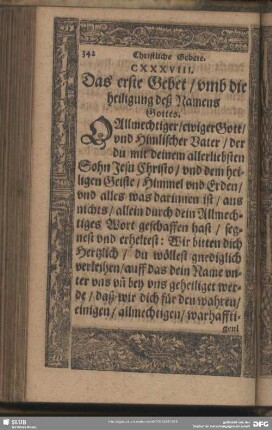 342
Christliche Gebete.
CXXXVIII.
Das erste Gebet / vmb die
heiligung deß Namens
Gottes.
O Allmechtiger / ewiger Gott /
vnd Himlischer Vater / der
du mit deinem allerliebsten
Sohn Jesu Christo / vnd dem hei-
ligen Geiste / Himmel vnd Erden /
vnd alles was darinnen ist / aus
nichts / allein durch dein Allmech-
tiges Wort geschaffen hast / seg-
nest vnd erheltest: Wir bitten dich
Hertzlich / du wöllest gnediglich
verleihen / auff das dein Name vn-
ter vns vñ bey vns geheiliget wer-
de / daß wir dich für den wahren /
einigen / allmechtigen / warhaffti-
gen /
SLUB
DFG